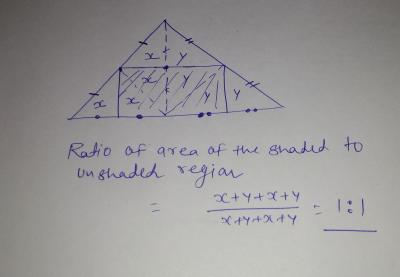 x y
x y
x x y y
Ratio of area of the shaded to
unshaded region
= x+y+x+y / x+y+x+y = 1:1